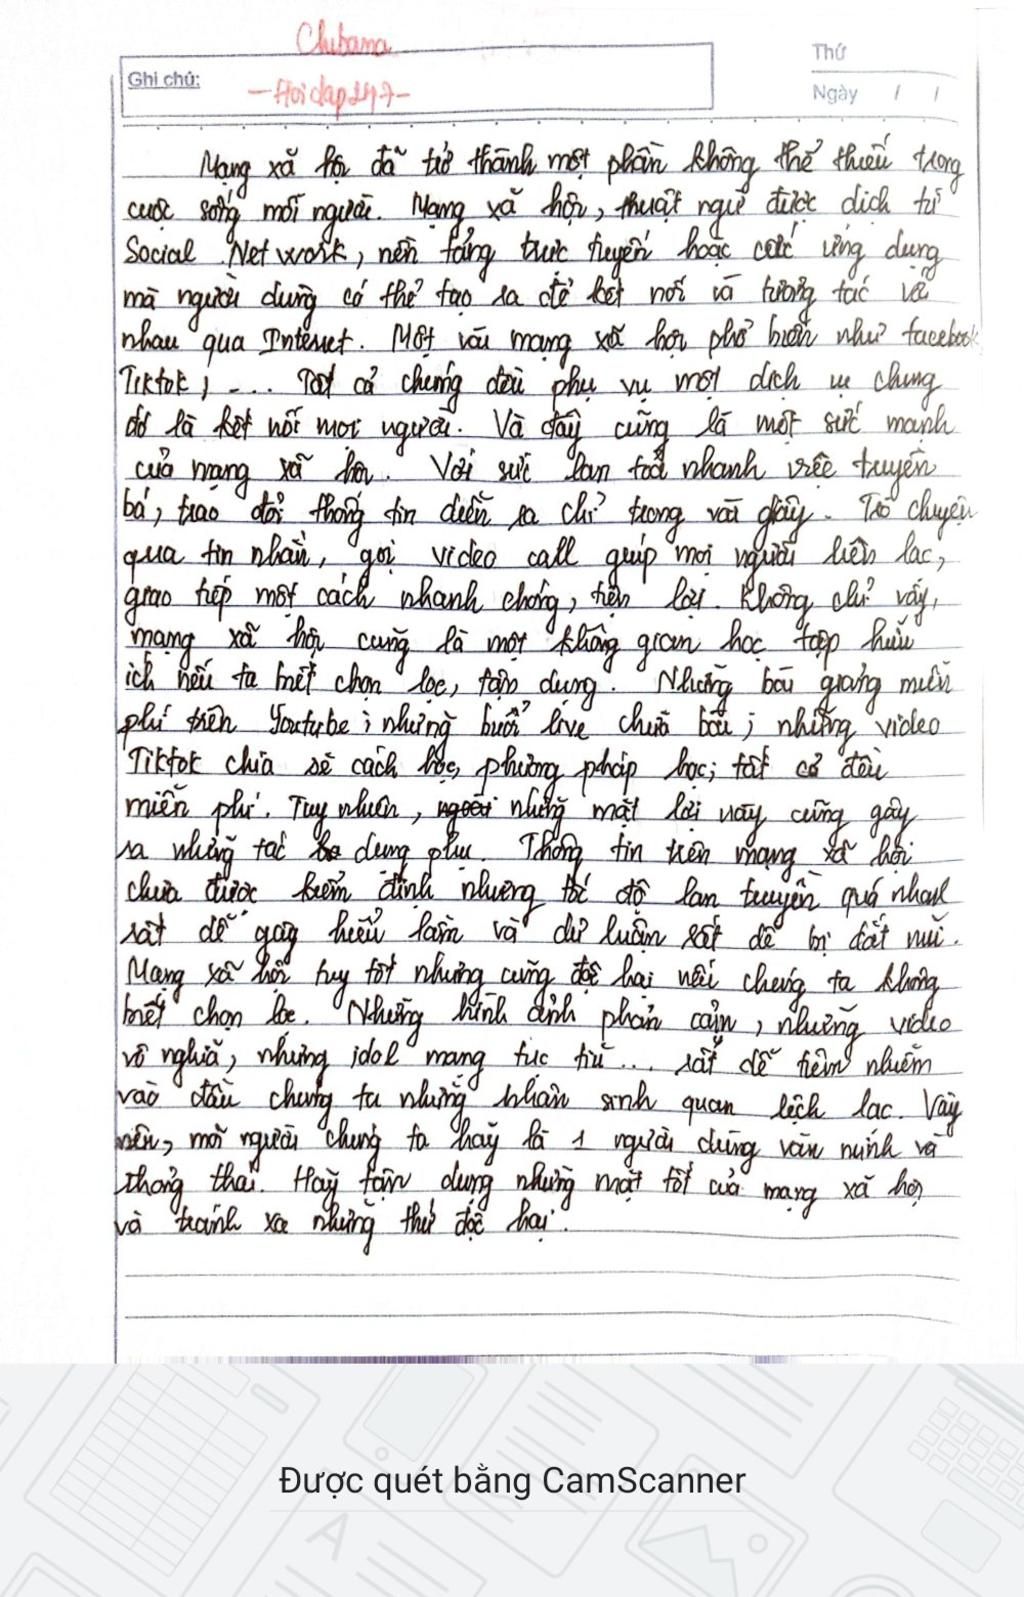 Chubama
Ghi chú:
-Hoidap247-
Thứ
Ngày / /
Mạng xã hội đã trở thành một phần không thể thiếu trong
cuộc sống mỗi người. Mạng xã hội, thuật ngữ được dịch từ
Social Network, nền tảng trực tuyến hoặc các ứng dụng
mà người dùng có thể tạo ra để kết nối và tương tác với
nhau qua Internet. Một vài mạng xã hội phổ biến như facebook
Tiktok, .... Tất cả chúng đều phục vụ một dịch vụ chung
đó là kết nối mọi người. Và đây cũng là một sức mạnh
của mạng xã hội. Với sức lan toả nhanh việc truyền
bá, trao đổi thông tin diễn ra chỉ trong vài giây. Trò chuyện
qua tin nhắn, gọi video call giúp mọi người liên lạc,
giao tiếp một cách nhanh chóng, tiện lợi. Không chỉ vậy,
mạng xã hội cũng là một không gian học tập hữu
ích nếu ta biết chọn lọc, tận dụng. Những bài giảng miễn
phí trên Youtube; những buổi live chữa bài; những video
Tiktok chia sẻ cách học, phương pháp học; tất cả đều
miễn phí. Tuy nhiên, những mặt lợi này cũng gây
ra những tác dụng phụ. Thông tin trên mạng xã hội
chưa được kiểm định nhưng tốc độ lan truyền quá nhanh
rất dễ gây hiểu lầm và dư luận rất dễ bị dắt mũi.
Mạng xã hội tuy tốt nhưng cũng độc hại nếu chúng ta không
biết chọn lọc. Những hình ảnh phản cảm, những video
vô nghĩa, những idol mạng tục tĩu... rất dễ tiêm nhiễm
vào đầu chúng ta những nhân sinh quan lệch lạc. Vậy
nên, mỗi người chúng ta hãy là 1 người dùng văn minh và
thông thái. Hãy tận dụng những mặt tốt của mạng xã hội
và tránh xa những thứ độc hại.
Được quét bằng CamScanner